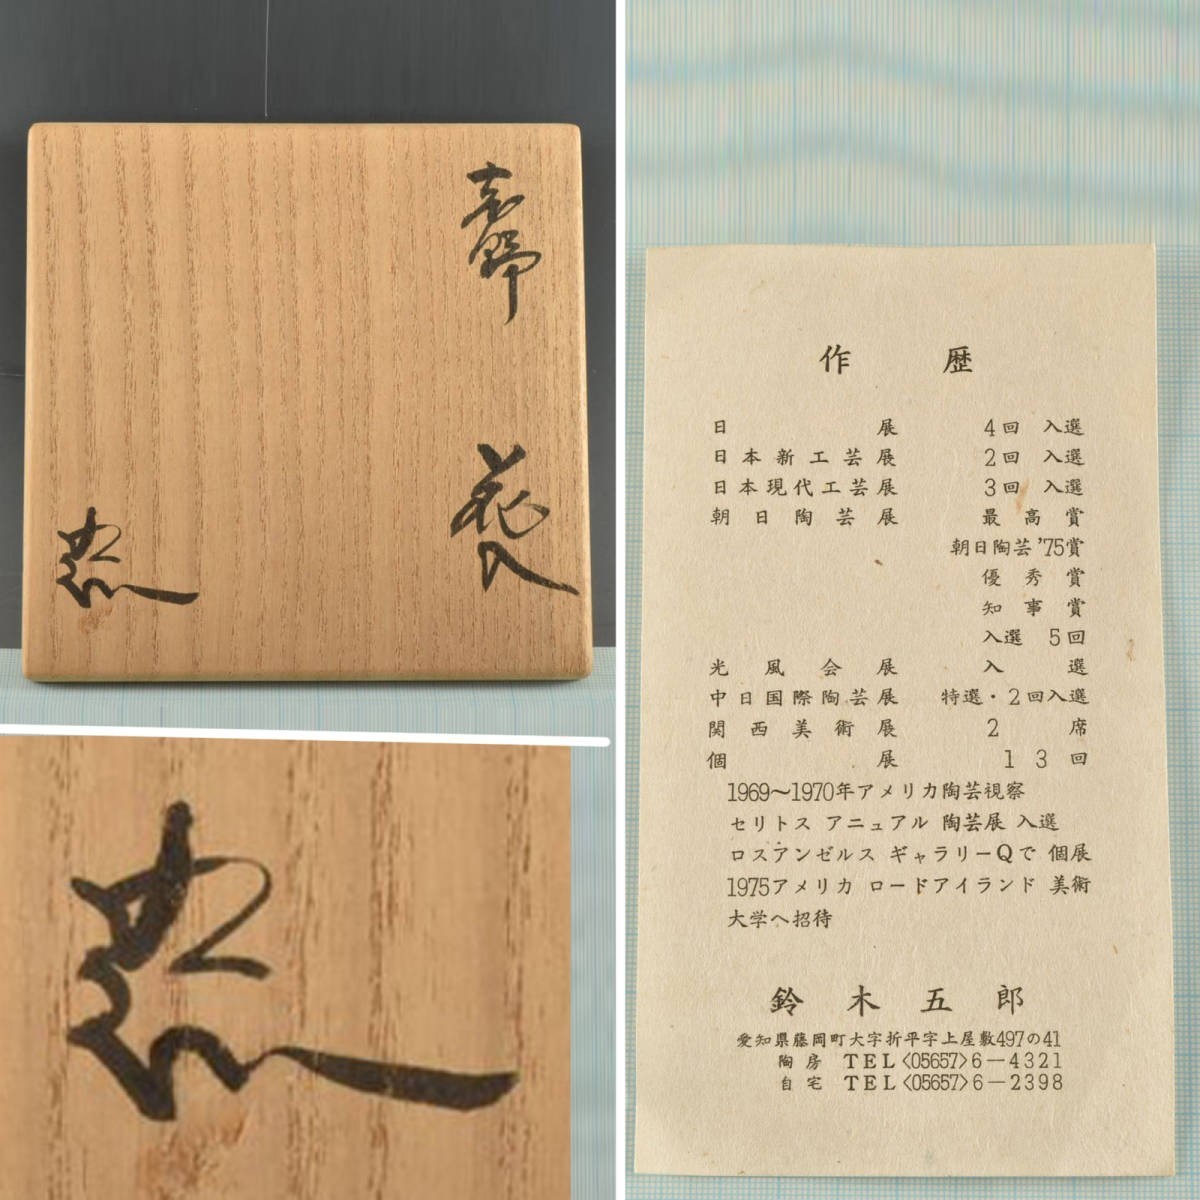 志野
花入
作歴
日展 4回 入選
日本新工芸展 2回 入選
日本現代工芸展 3回 入選
朝日陶芸展 最高賞
朝日陶芸'75賞
優秀賞
知事賞
入選 5回
光風会展 入選
中日国際陶芸展 特選・2回入選
関西美術展 2席
個展 13回
1969〜1970年アメリカ陶芸視察
セリトス アニュアル 陶芸展 入選
ロスアンゼルス ギャラリーQで 個展
1975アメリカ ロードアイランド 美術
大学へ招待
鈴木五郎
愛知県藤岡町大字折平字上屋敷497の41
陶房 TEL<05657>6-4321
自宅 TEL<05657>6-2398